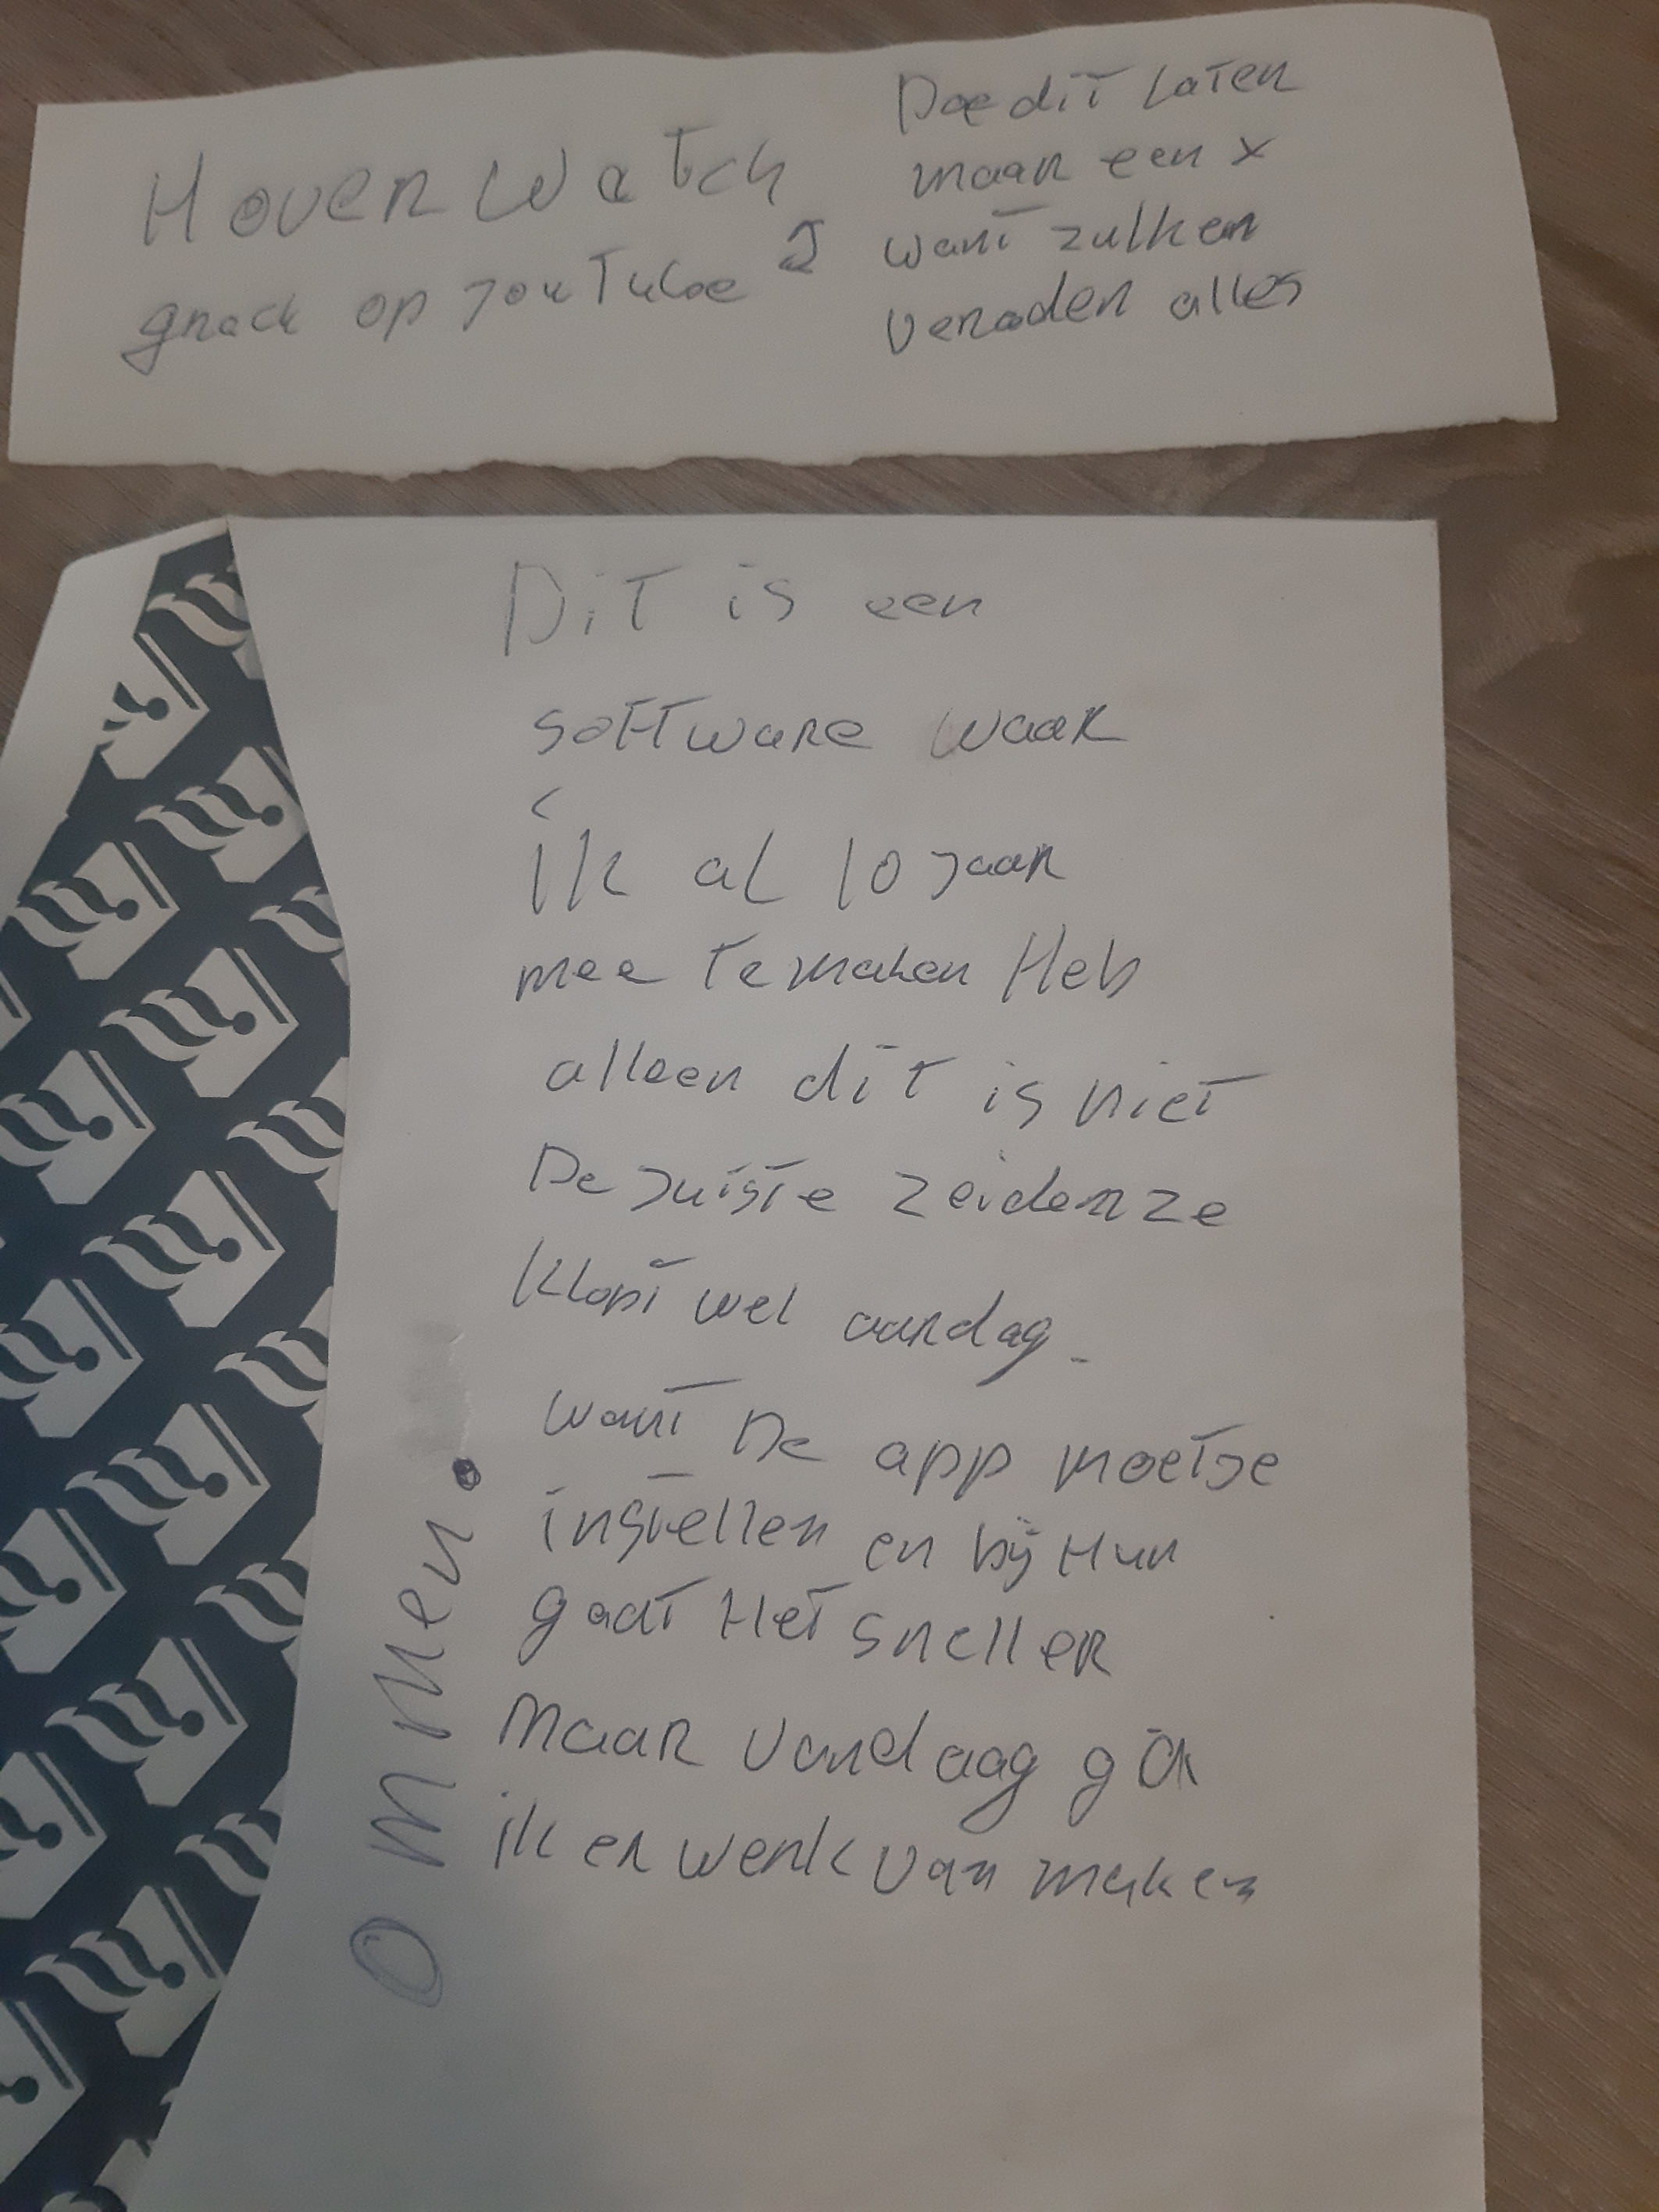 Hover Watch
gnack op youTube
Doe dit laten
maar een x
want zulken
veraden alles
Dit is een
software waar
ik al 10 jaar
mee te maken Heb
alleen dit is niet
De juiste zeiden ze
Klopt wel aardag
want De app moet je
instellen en bij Hun
gaat Het sneller
Maar vandaag ga
ik er werk van maken
Ommen.